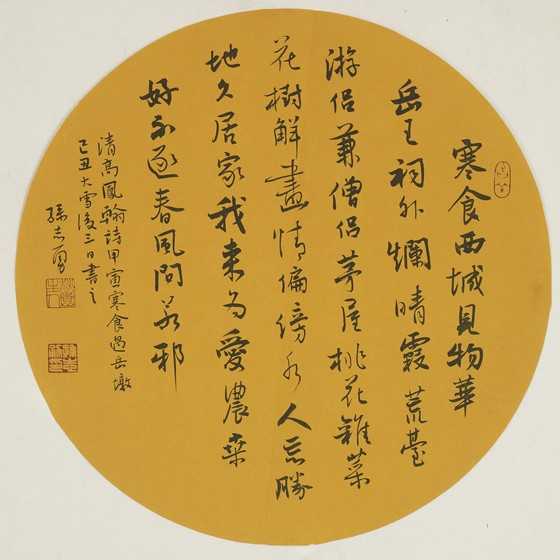 寒食西城見物華
岳王祠外爛晴霞荒臺
游侶兼僧侶茅屋桃花雜菜
花樹鮮畫情偏傍水人忘勝
地久居家我来為愛濃桑
好不逐春風問若邪
清高鳳翰詩甲寅寒食過岳墩
己丑大雪後三日書之
孫志勇